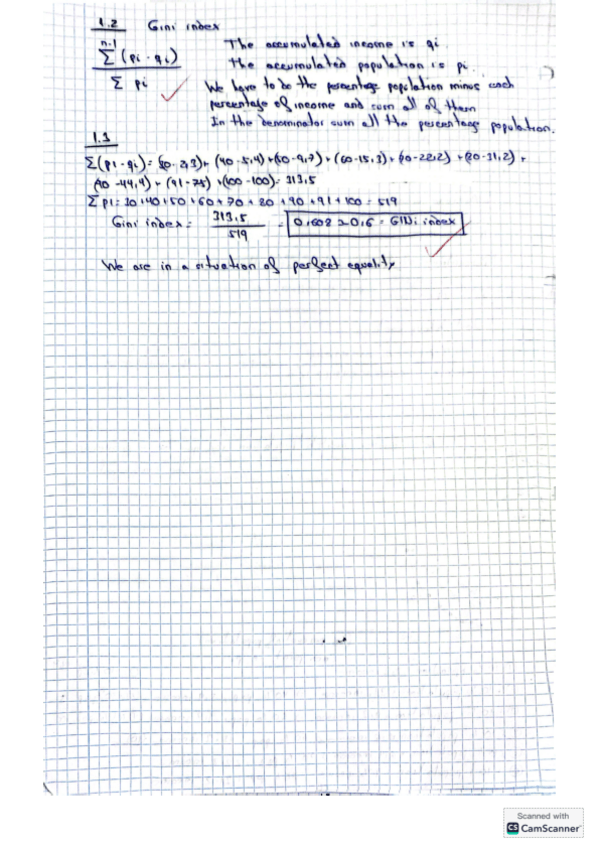 1.2 Gini index
n-1
Σ (pi - qi)
Σ pi
The accumulated income is qi.
The accumulated population is pi.
We have to do the percentage population minus each
percentage of income and sum all of them
In the denominator sum all the percentage population.
1.3
Σ(pi - qi) = (30 - 2,3) + (40 - 5,4) + (50 - 9,7) + (60 - 15,3) + (70 - 22,2) + (80 - 31,2) +
(90 - 44,4) + (91 - 75) + (100 - 100) = 313,5
Σ pi = 30 + 40 + 50 + 60 + 70 + 80 + 90 + 91 + 100 = 519
Gini index = 313,5 / 519 = 0,602 ≈ 0,6 = GINI index
We are in a situation of perfect equality
Scanned with
CS CamScanner